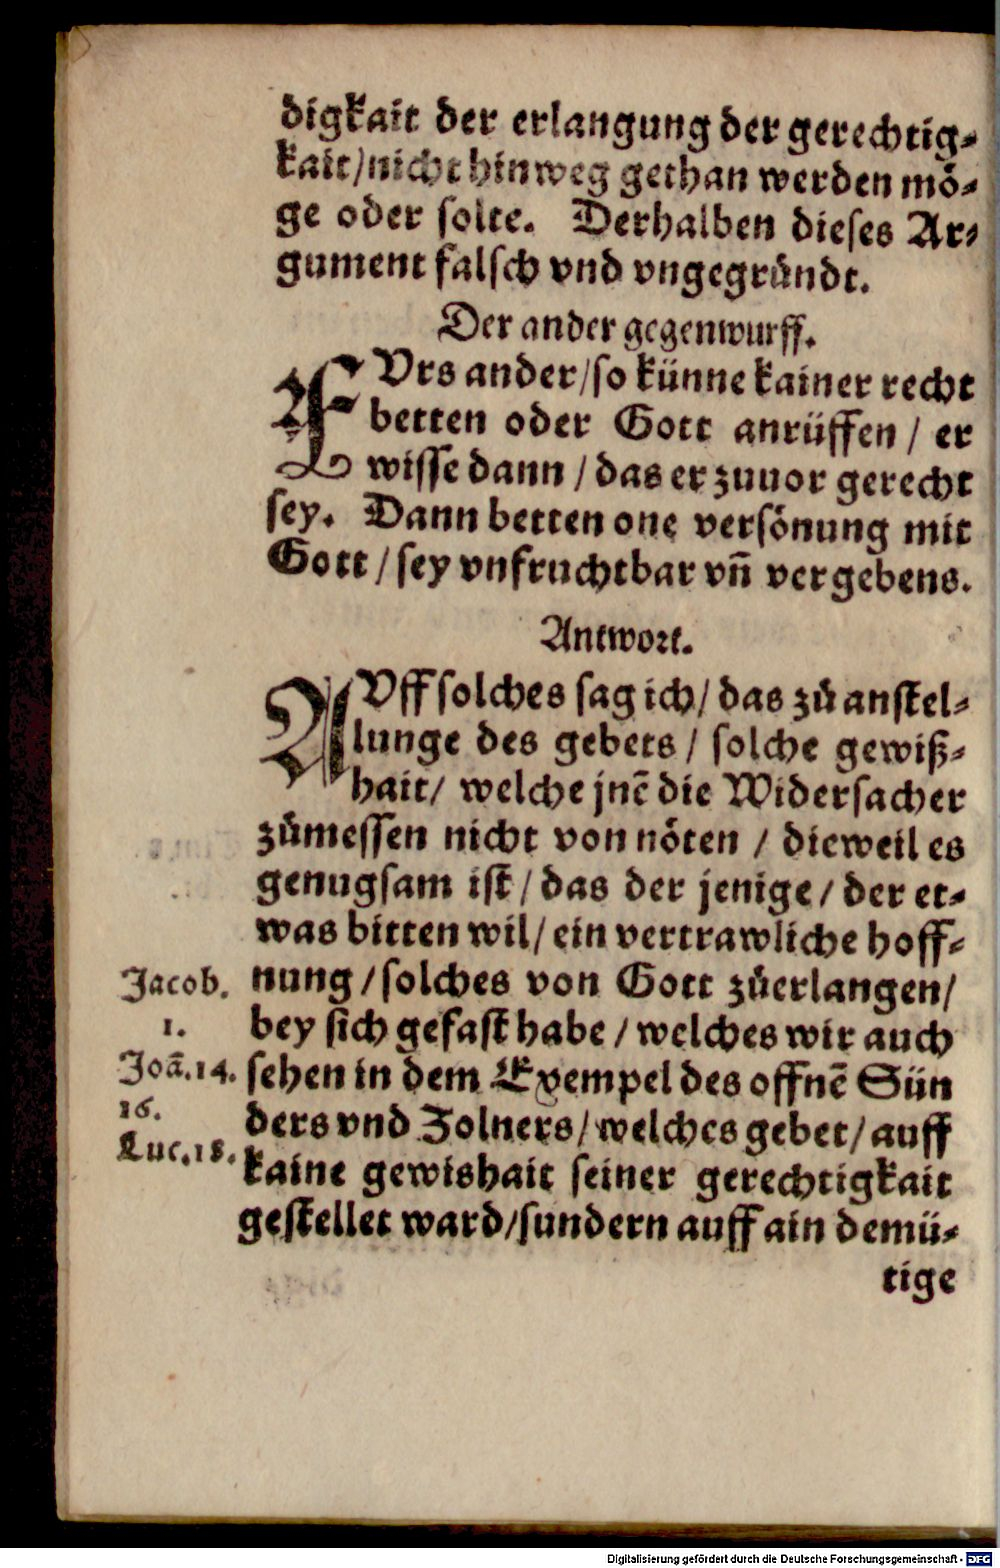 digkait der erlangung der gerechtig⸗
kait/nicht hinweg gethan werden mö⸗
ge oder solte. Derhalben dieses Ar⸗
gument falsch vnd vngegründt.
Der ander gegenwurff.
FVrs ander/so künne kainer recht
betten oder Gott anrüffen / er
wisse dann / das er zuuor gerecht
sey. Dann betten one versönung mit
Gott / sey vnfruchtbar vñ vergebens.
Antwort.
AVff solches sag ich/ das zů anstel⸗
lunge des gebets / solche gewiß⸗
hait/ welche jnē die Widersacher
zůmessen nicht von nöten / dieweil es
genugsam ist / das der jenige / der et⸗
was bitten wil/ ein vertrawliche hoff⸗
Jacob. nung /solches von Gott zůerlangen/
1. bey sich gefast habe / welches wir auch
Joā.14. sehen in dem Exempel des offnē Sün
16. ders vnd Zolners/ welches gebet/ auff
Luc.18. kaine gewishait seiner gerechtigkait
gestellet ward/sundern auff ain demü⸗
tige
Digitalisierung gefördert durch die Deutsche Forschungsgemeinschaft - DFG